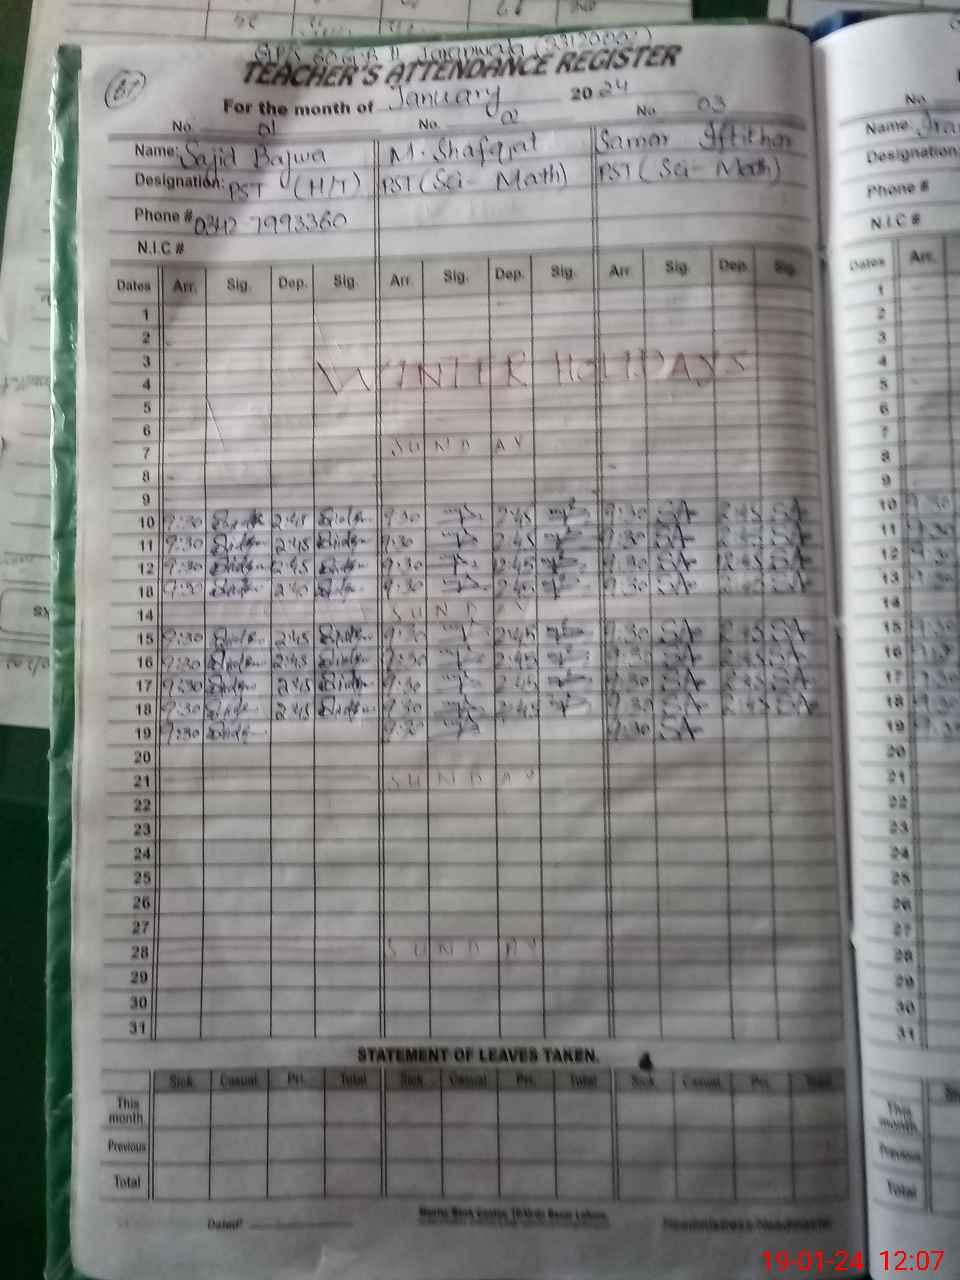 61
GPS 60 GB II Jaranwala (33120001)
TEACHER'S ATTENDANCE REGISTER
For the month of January 2024
No. 01 No. 02 No. 03
Name: Sajid Bajwa M. Shafqat Samar Iftikhar
Designation: PST (H/T) PST (Sci - Math) PST (Sci - Math)
Phone # 0342 7993360
N.I.C #
Dates Arr. Sig. Dep. Sig. Arr. Sig. Dep. Sig. Arr. Sig. Dep. Sig.
1
2
3
WINTER HOLIDAYS
4
5
6
7 SUNDAY
8
9
10 9:30 2:45 9:30 2:45 9:30 SA 2:45 SA
11 9:30 2:45 9:30 2:45 9:30 SA 2:45 SA
12 9:30 2:45 9:30 2:45 9:30 SA 2:45 SA
13 9:30 2:45 9:30 2:45 9:30 SA 2:45 SA
14 SUNDAY
15 9:30 2:45 9:30 2:45 9:30 SA 2:45 SA
16 9:30 2:45 9:30 2:45 9:30 SA 2:45 SA
17 9:30 2:45 9:30 2:45 9:30 SA 2:45 SA
18 9:30 2:45 9:30 2:45 9:30 SA 2:45 SA
19 9:30 9:30 9:30 SA
20
21 SUNDAY
22
23
24
25
26
27
28 SUNDAY
29
30
31
STATEMENT OF LEAVES TAKEN.
Sick Casual Pri. Total Sick Casual Pri. Total Sick Casual Pri. Total
This month
Previous
Total
Dated:
No.
Name:
Designation:
Phone #
N.I.C #
Dates Arr.
1
2
3
4
5
6
7
8
9
10 9:30
11 9:30
12 9:30
13 9:30
14
15 9:30
16 9:30
17 9:30
18 9:30
19 9:30
20
21
22
23
24
25
26
27
28
29
30
31
This month
Previous
Total
19-01-24 12:07